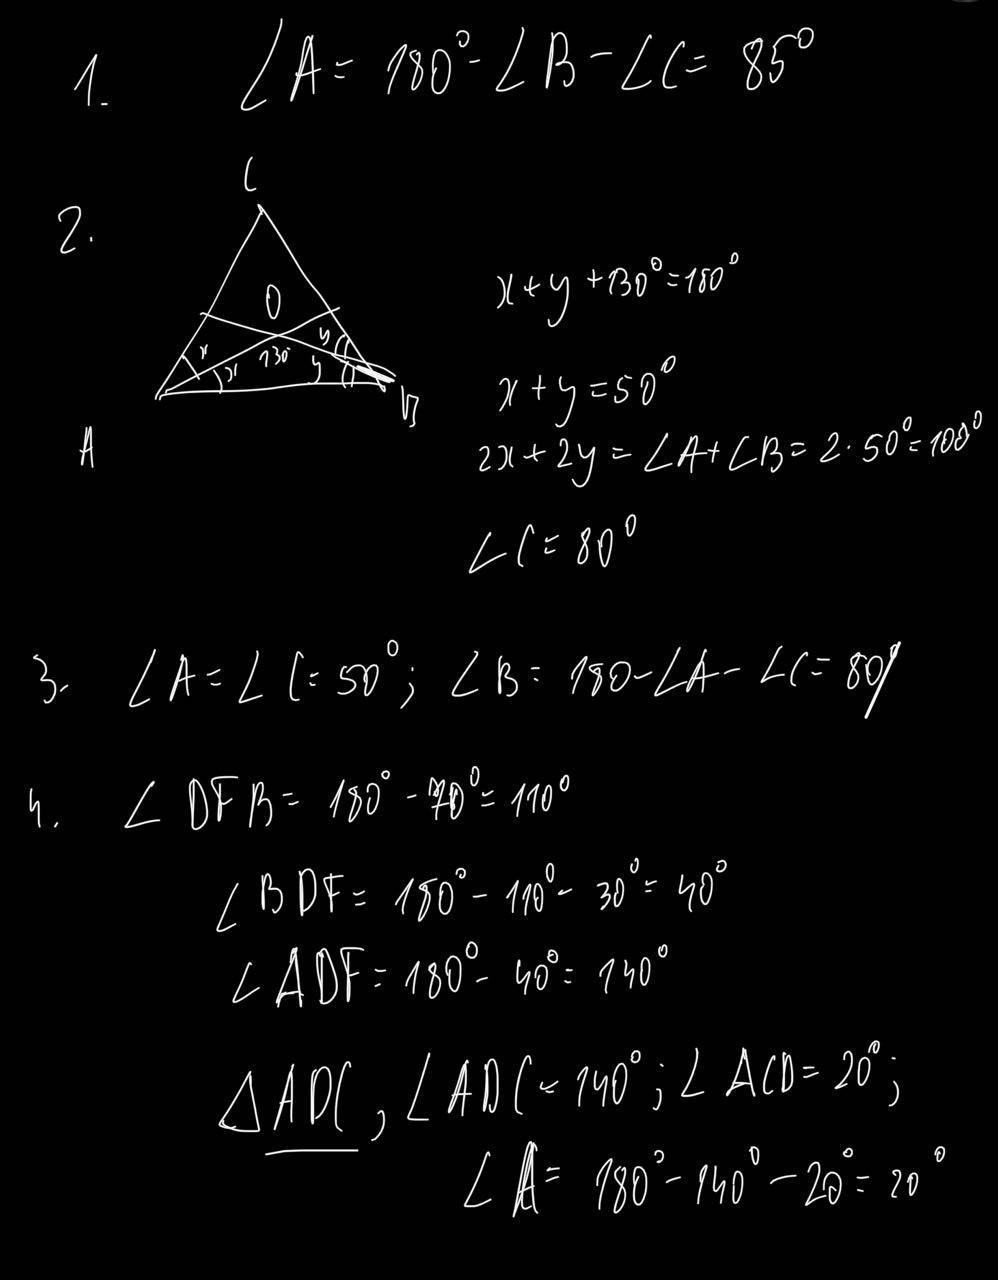 1. ∠A = 180° - ∠B - ∠C = 85°
C
2.
O
x + y + 130° = 180°
x x 130° y y
x + y = 50°
B
A
2x + 2y = ∠A + ∠B = 2 · 50° = 100°
∠C = 80°
3. ∠A = ∠C = 50°; ∠B = 180 - ∠A - ∠C = 80°
4. ∠DFB = 180° - 70° = 110°
∠BDF = 180° - 110° - 30° = 40°
∠ADF = 180° - 40° = 140°
△ADC, ∠ADC = 140°; ∠ACD = 20°;
∠A = 180° - 140° - 20° = 20°